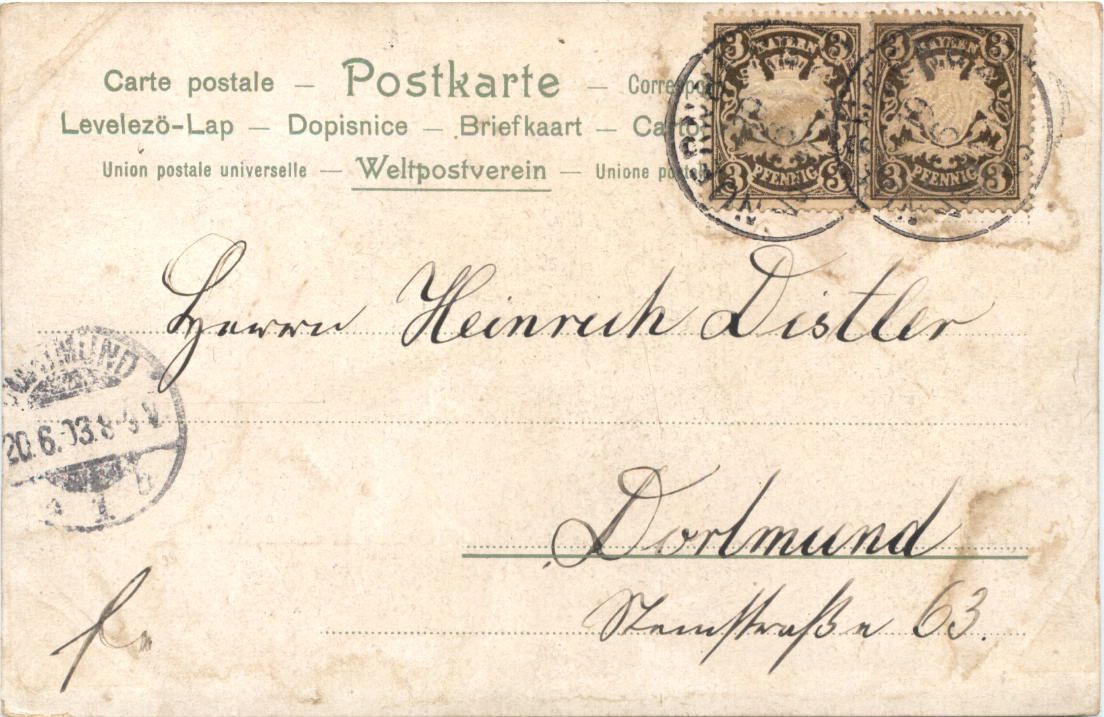 Carte postale — Postkarte — Correspo
Levelezö-Lap — Dopisnice — Briefkaart — Carto
Union postale universelle — Weltpostverein — Unione postal
3 3
BAYERN
PFENNIG
3 3
3 3
BAYERN
PFENNIG
3 3
Herrn Heinrich Distler
DORTMUND
20.6.03.8-9 V.
1 b
Dortmund
Steinstraße 63.